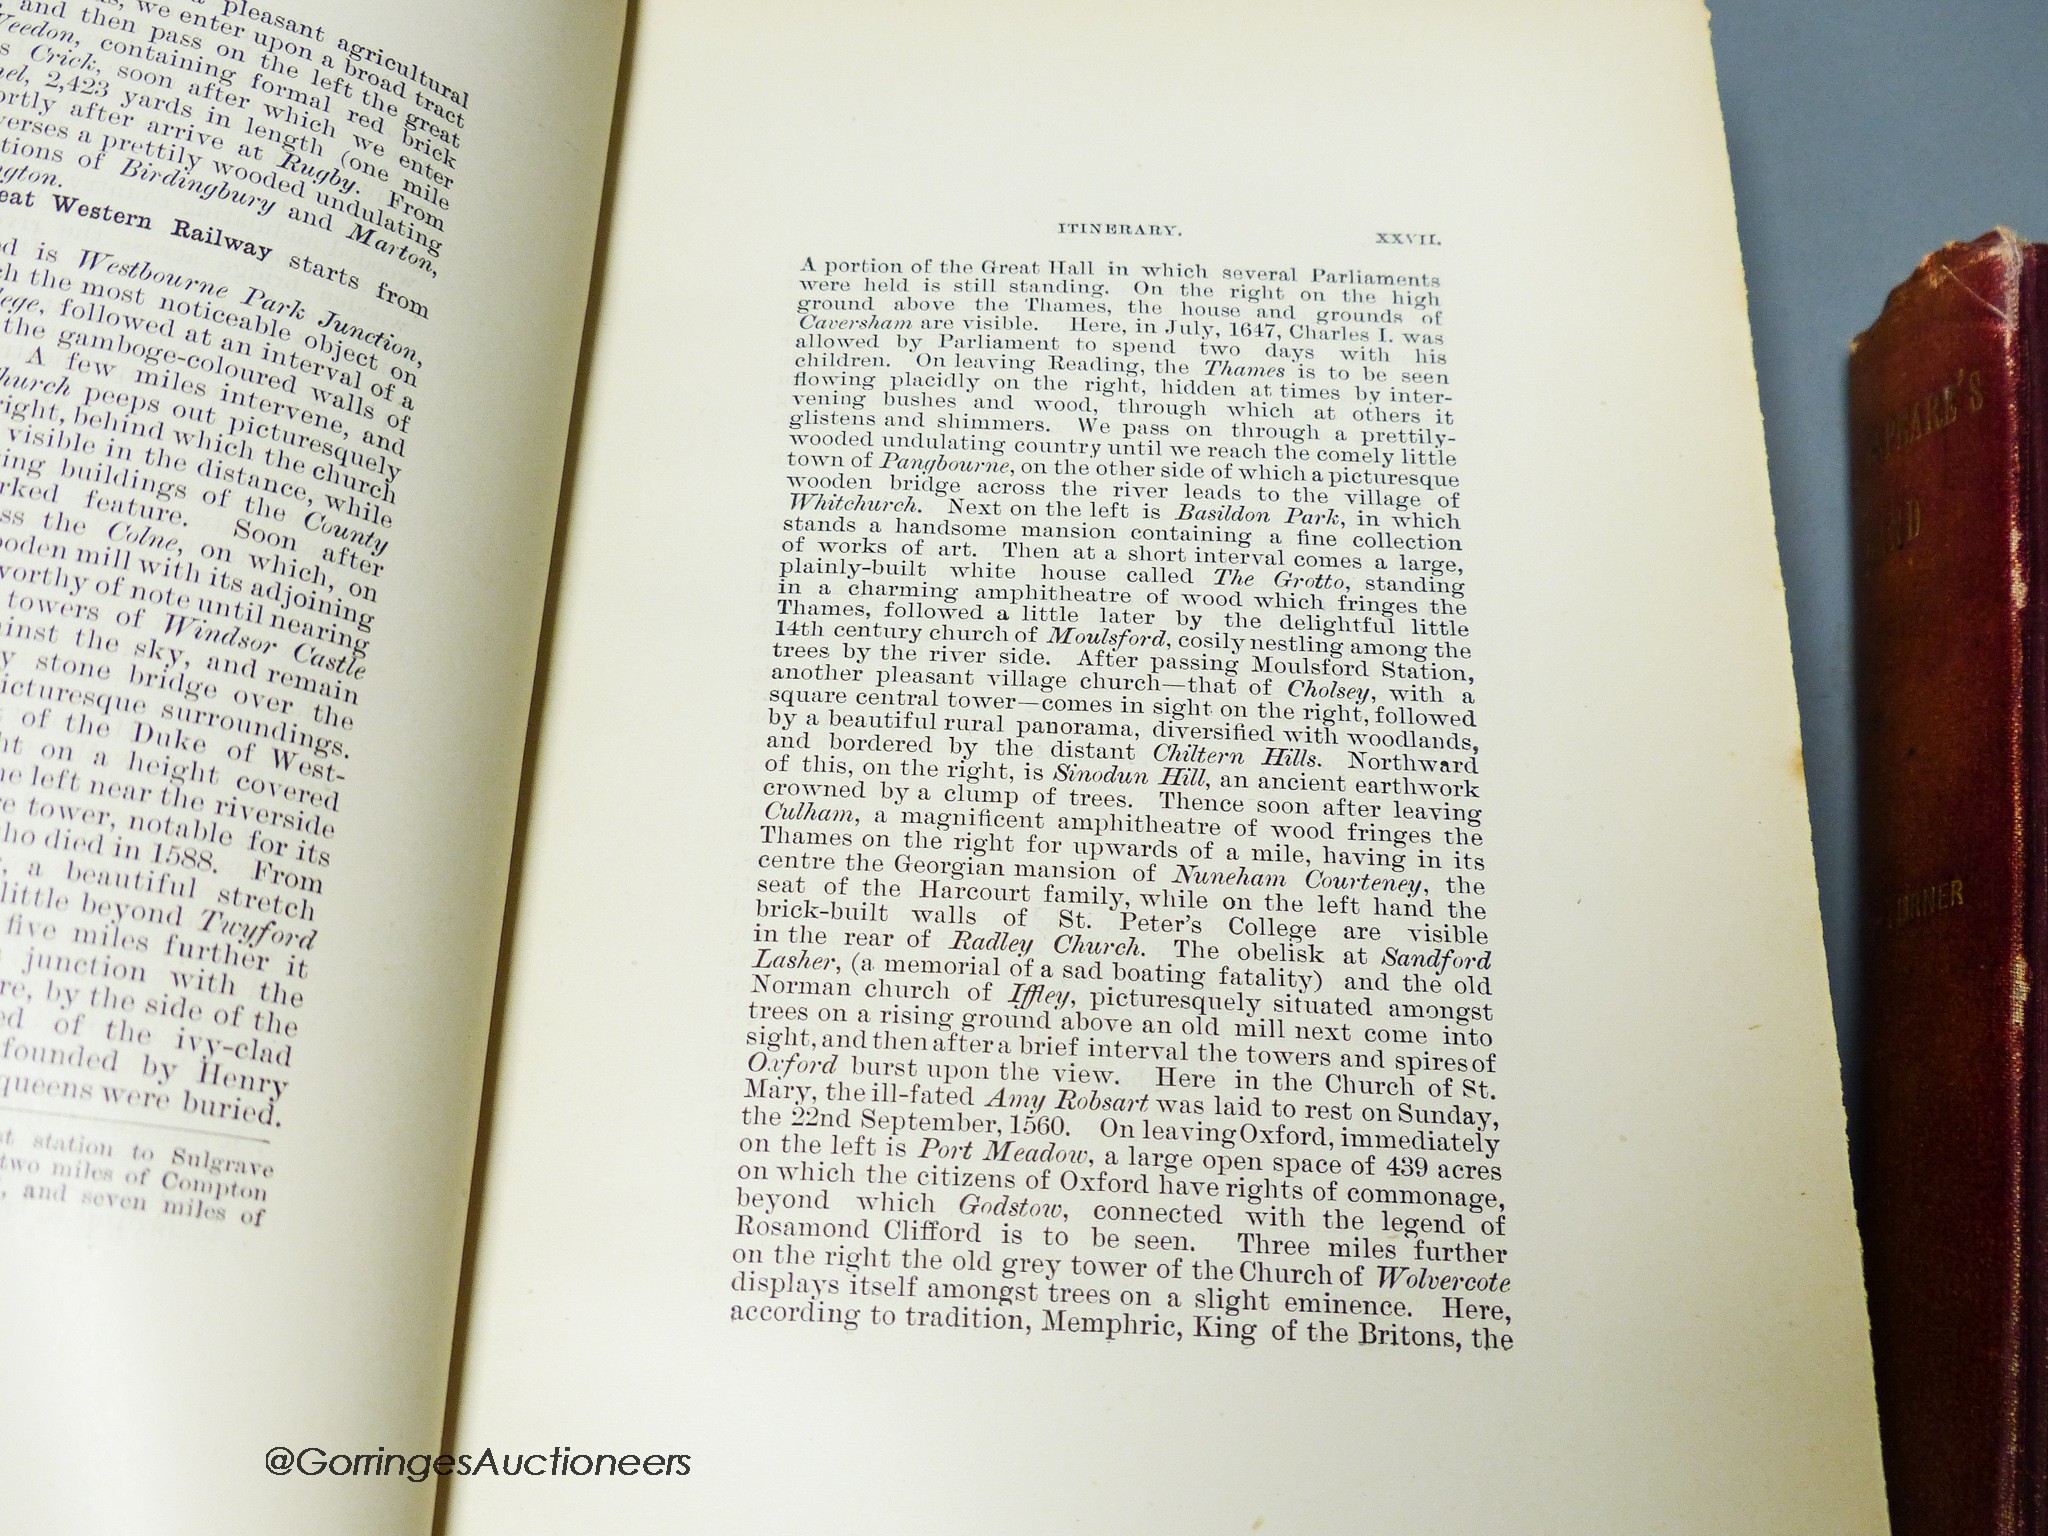 a pleasant agricultural
we enter upon a broad tract
and then pass on the left the great
Weedon, containing formal red brick
Crick, soon after which we enter
2,423 yards in length (one mile
after arrive at Rugby. From
a prettily wooded undulating
of Birdingbury and Marton,
Western Railway starts from
is Westbourne Park Junction,
the most noticeable object on
followed at an interval of a
the gamboge-coloured walls of
A few miles intervene, and
peeps out picturesquely
right, behind which the church
visible in the distance, while
buildings of the County
feature. Soon after
the Colne, on which, on
mill with its adjoining
worthy of note until nearing
towers of Windsor Castle
the sky, and remain
stone bridge over the
picturesque surroundings.
of the Duke of West-
on a height covered
left near the riverside
tower, notable for its
who died in 1588. From
a beautiful stretch
little beyond Twyford
five miles further it
junction with the
by the side of the
of the ivy-clad
founded by Henry
queens were buried.
station to Sulgrave
two miles of Compton
and seven miles of
ITINERARY. XXVII.
A portion of the Great Hall in which several Parliaments
were held is still standing. On the right on the high
ground above the Thames, the house and grounds of
Caversham are visible. Here, in July, 1647, Charles I. was
allowed by Parliament to spend two days with his
children. On leaving Reading, the Thames is to be seen
flowing placidly on the right, hidden at times by inter-
vening bushes and wood, through which at others it
glistens and shimmers. We pass on through a prettily-
wooded undulating country until we reach the comely little
town of Pangbourne, on the other side of which a picturesque
wooden bridge across the river leads to the village of
Whitchurch. Next on the left is Basildon Park, in which
stands a handsome mansion containing a fine collection
of works of art. Then at a short interval comes a large,
plainly-built white house called The Grotto, standing
in a charming amphitheatre of wood which fringes the
Thames, followed a little later by the delightful little
14th century church of Moulsford, cosily nestling among the
trees by the river side. After passing Moulsford Station,
another pleasant village church—that of Cholsey, with a
square central tower—comes in sight on the right, followed
by a beautiful rural panorama, diversified with woodlands,
and bordered by the distant Chiltern Hills. Northward
of this, on the right, is Sinodun Hill, an ancient earthwork
crowned by a clump of trees. Thence soon after leaving
Culham, a magnificent amphitheatre of wood fringes the
Thames on the right for upwards of a mile, having in its
centre the Georgian mansion of Nuneham Courteney, the
seat of the Harcourt family, while on the left hand the
brick-built walls of St. Peter's College are visible
in the rear of Radley Church. The obelisk at Sandford
Lasher, (a memorial of a sad boating fatality) and the old
Norman church of Iffley, picturesquely situated amongst
trees on a rising ground above an old mill next come into
sight, and then after a brief interval the towers and spires of
Oxford burst upon the view. Here in the Church of St.
Mary, the ill-fated Amy Robsart was laid to rest on Sunday,
the 22nd September, 1560. On leaving Oxford, immediately
on the left is Port Meadow, a large open space of 439 acres
on which the citizens of Oxford have rights of commonage,
beyond which Godstow, connected with the legend of
Rosamond Clifford is to be seen. Three miles further
on the right the old grey tower of the Church of Wolvercote
displays itself amongst trees on a slight eminence. Here,
according to tradition, Memphric, King of the Britons, the
@GorringesAuctioneers